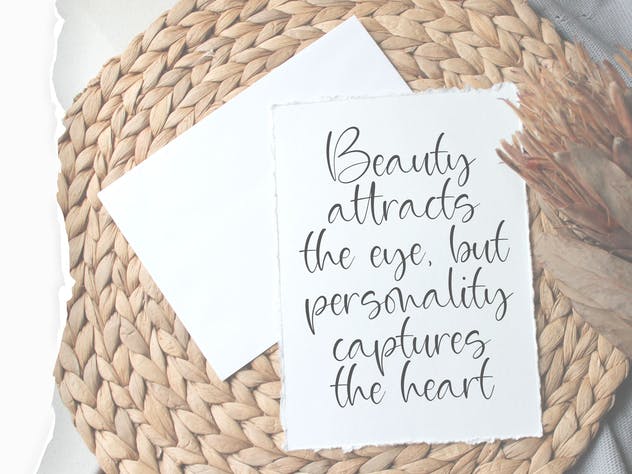 Beauty
attracts
the eye, but
personality
captures
the heart